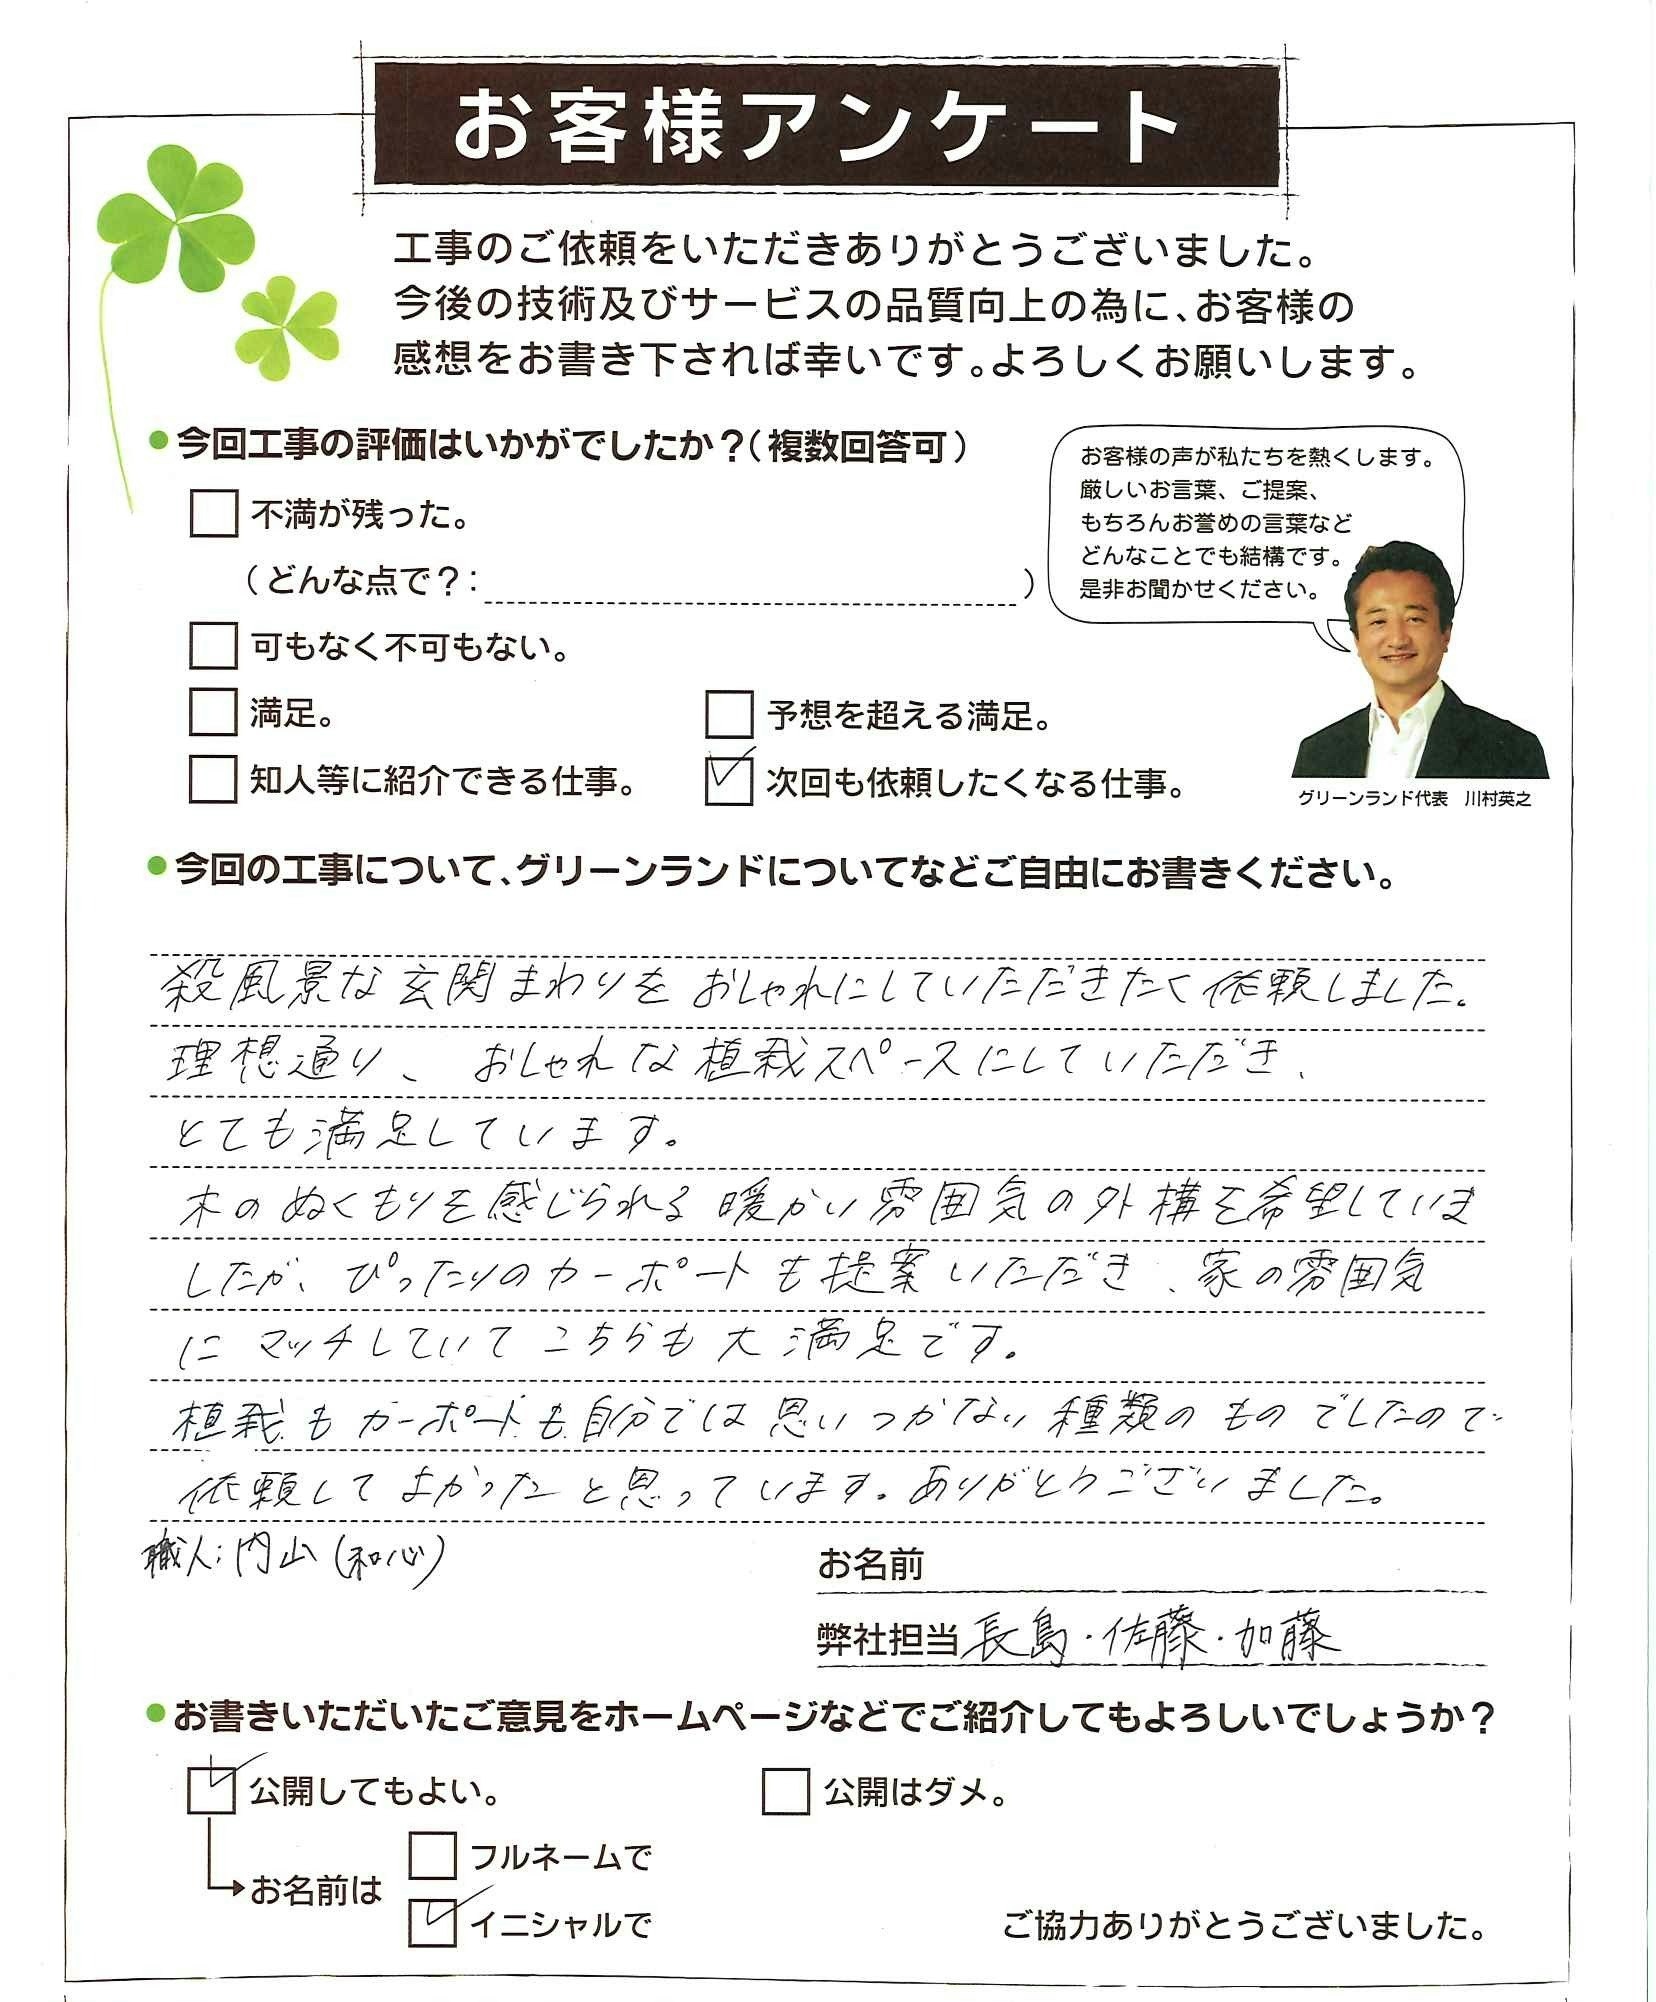 お客様アンケート
工事のご依頼をいただきありがとうございました。
今後の技術及びサービスの品質向上の為に、お客様の
感想をお書き下されば幸いです。よろしくお願いします。
今回工事の評価はいかがでしたか？（複数回答可）
お客様の声が私たちを熱くします。
厳しいお言葉、ご提案、
もちろんお誉めの言葉など
どんなことでも結構です。
是非お聞かせください。
不満が残った。
（どんな点で？： ）
可もなく不可もない。
満足。
予想を超える満足。
知人等に紹介できる仕事。
次回も依頼したくなる仕事。
グリーンランド代表 川村英之
今回の工事について、グリーンランドについてなどご自由にお書きください。
殺風景な玄関まわりをおしゃれにしていただきたく依頼しました。
理想通り、おしゃれな植栽スペースにしていただき、
とても満足しています。
木のぬくもりを感じられる暖かい雰囲気の外構を希望していま
したが、ぴったりのカーポートも提案いただき、家の雰囲気
にマッチしていてこちらも大満足です。
植栽もカーポートも自分では思いつかない種類のものでしたので
依頼してよかったと思っています。ありがとうございました。
職人：内山（和心）
お名前
弊社担当 長島・佐藤・加藤
お書きいただいたご意見をホームページなどでご紹介してもよろしいでしょうか？
公開してもよい。
公開はダメ。
お名前は
フルネームで
イニシャルで
ご協力ありがとうございました。